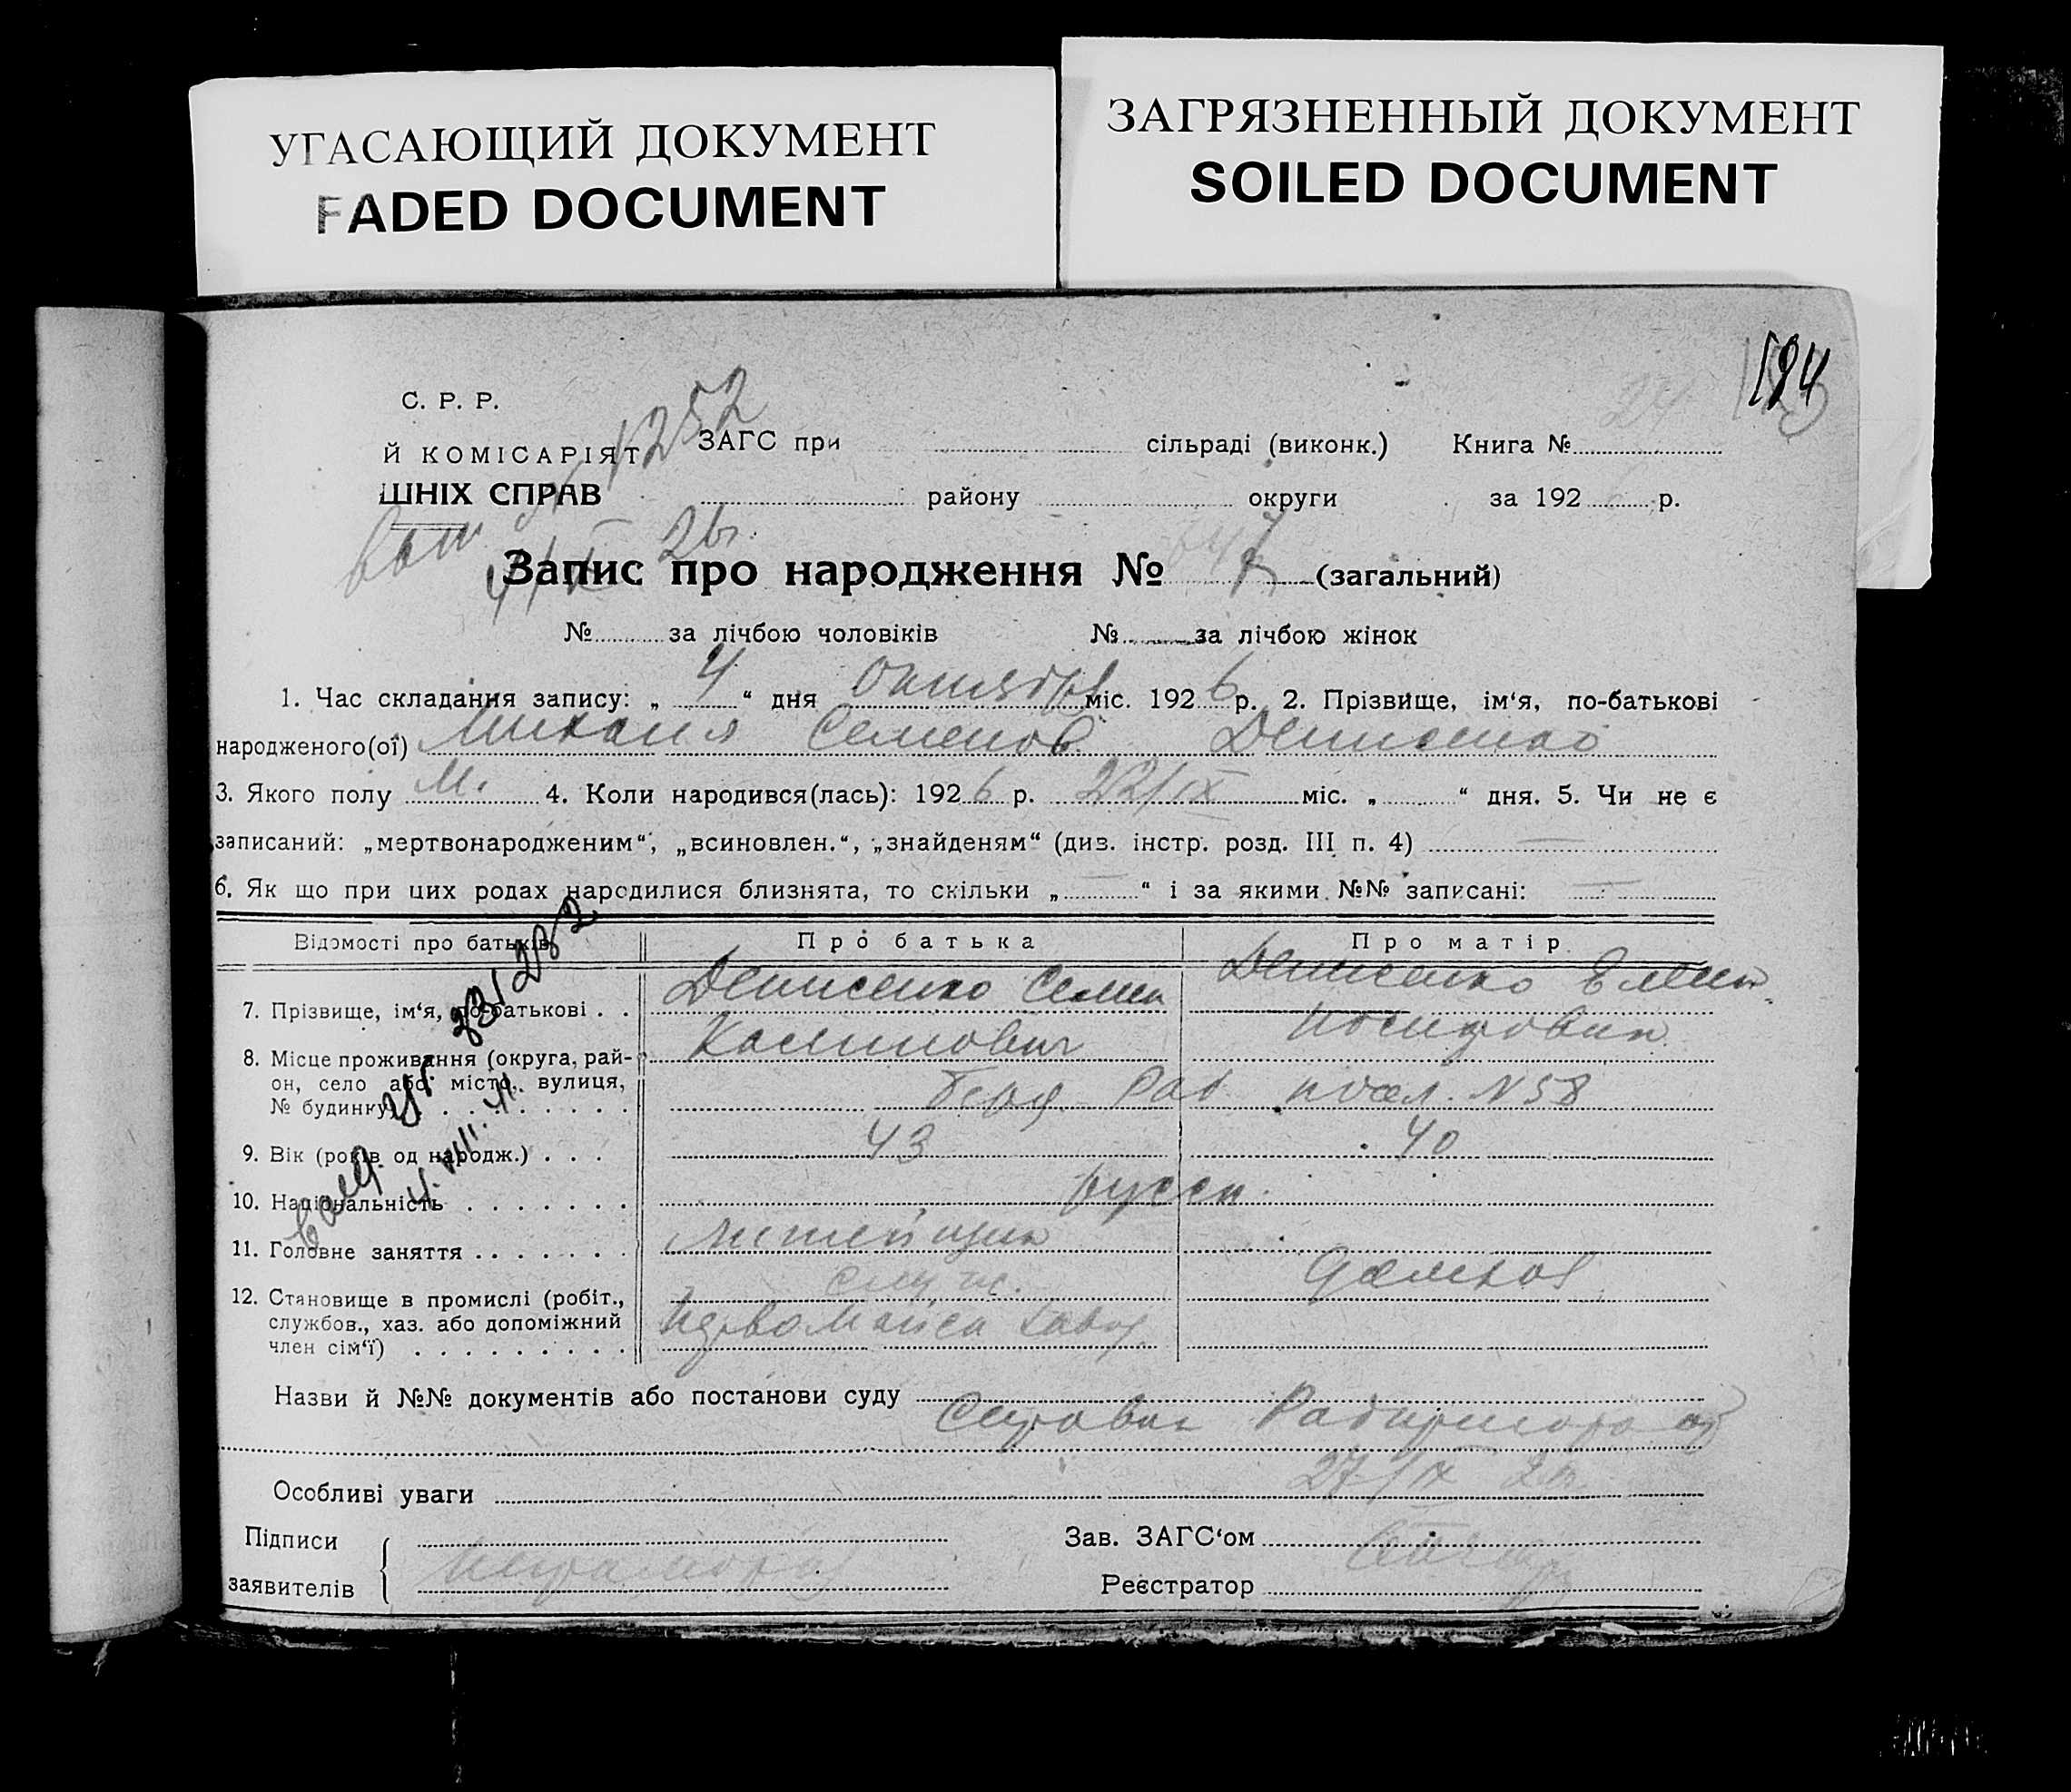 УГАСАЮЩИЙ ДОКУМЕНТ
FADED DOCUMENT
ЗАГРЯЗНЕННЫЙ ДОКУМЕНТ
SOILED DOCUMENT
194
С. Р. Р.
Й КОМІСАРІЯТ
ШНІХ СПРАВ
1252
ЗАГС при сільраді (виконк.) Книга № 24
району округи за 192 6 р.
Запис про народження № (загальний)
№ за лічбою чоловіків № за лічбою жінок
1. Час складання запису: „ 4 “ дня Октября міс. 192 6 р. 2. Прізвище, ім‘я, по-батькові
народженого(ої) Михаил Семенов Денисенко
3. Якого полу М. 4. Коли народився(лась): 192 6 р. 22/IX міс. „ “ дня. 5. Чи не є
записаний: „мертвонародженим“, „всиновлен.“, „знайденям“ (див. інстр. розд. III п. 4) —
6. Як що при цих родах народилися близнята, то скільки „ — “ і за якими №№ записані: —
Відомості про батьків Про батька Про матір
7. Прізвище, ім‘я, по-батькові . . Денисенко Семен Денисенко Елен
8. Місце проживання (округа, рай-
он, село або місто, вулиця,
№ будинку) Раб. посел. N 58
9. Вік (років од народж.) . . . 43 40
10. Національність русск
11. Головне заняття литейщик
12. Становище в промислі (робіт.,
службов., хаз. або допоміжний
член сім‘ї)
Первомайск завод
домхоз
Назви й №№ документів або постанови суду
Справка
27/IX 26
Особливі уваги
Підписи
заявителів
неграмотн
Зав. ЗАГС‘ом
Реєстратор